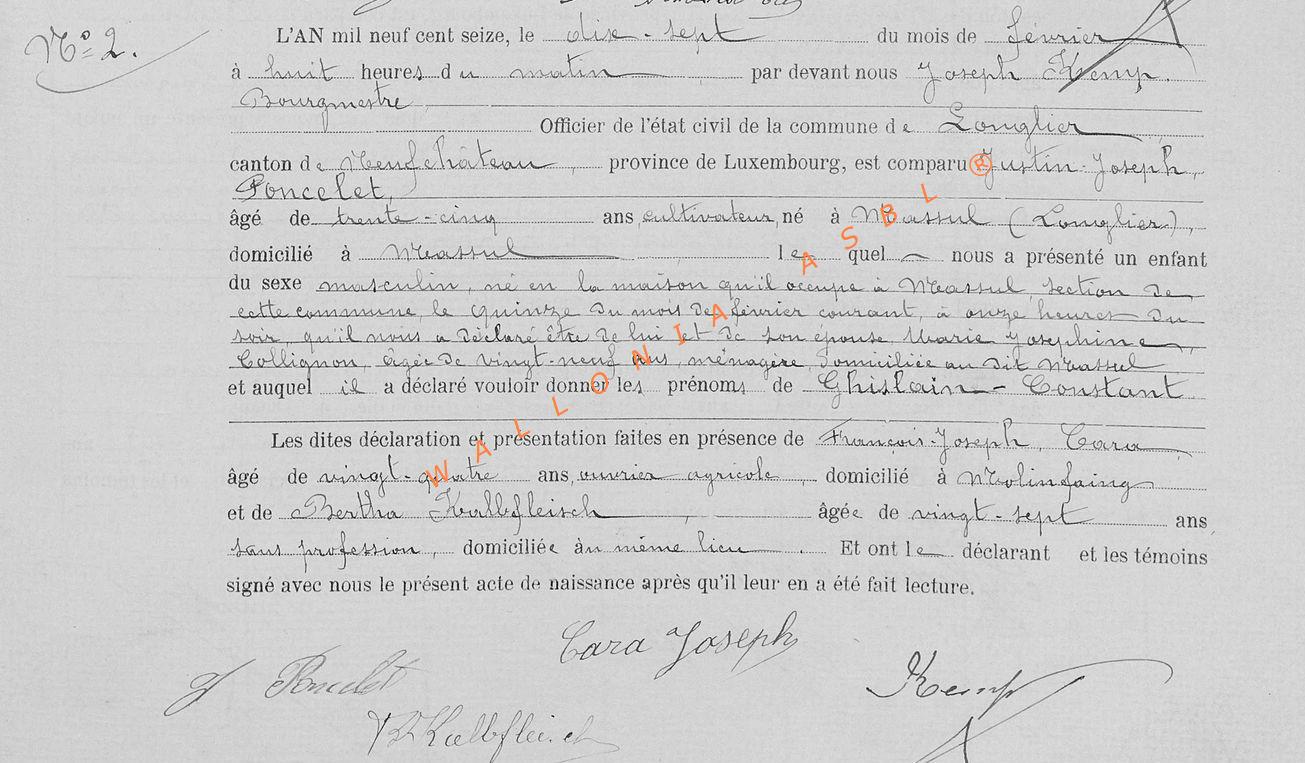 N° 2.
L'AN mil neuf cent seize, le dix-sept du mois de février
à huit heures du matin par devant nous Joseph Kemp.
Bourgmestre
Officier de l'état civil de la commune de Longlier
canton de Neufchâteau, province de Luxembourg, est comparu Justin-Joseph,
Poncelet,
âgé de trente-cinq ans, cultivateur, né à Massul (Longlier),
domicilié à Massul lequel nous a présenté un enfant
du sexe masculin, né en la maison qu'il occupe à Massul, section de
cette commune, le quinze du mois de février courant, à onze heures du
soir, qu'il nous a déclaré être de lui et de son épouse Marie Josephine,
Collignon, âgée de vingt-neuf ans, ménagère, domiciliée au dit Massul
et auquel il a déclaré vouloir donner les prénoms de Ghislain-Constant
Les dites déclaration et présentation faites en présence de François-Joseph, Cara
âgé de vingt-quatre ans, ouvrier agricole, domicilié à Molinfaing
et de Bertha Kalbfleisch, âgée de vingt-sept ans
sans profession, domiciliée au même lieu. Et ont le déclarant et les témoins
signé avec nous le présent acte de naissance après qu'il leur en a été fait lecture.
Cara Joseph
J Poncelet
Kemp
B Kalbfleisch
WALLONIA ASBL ®